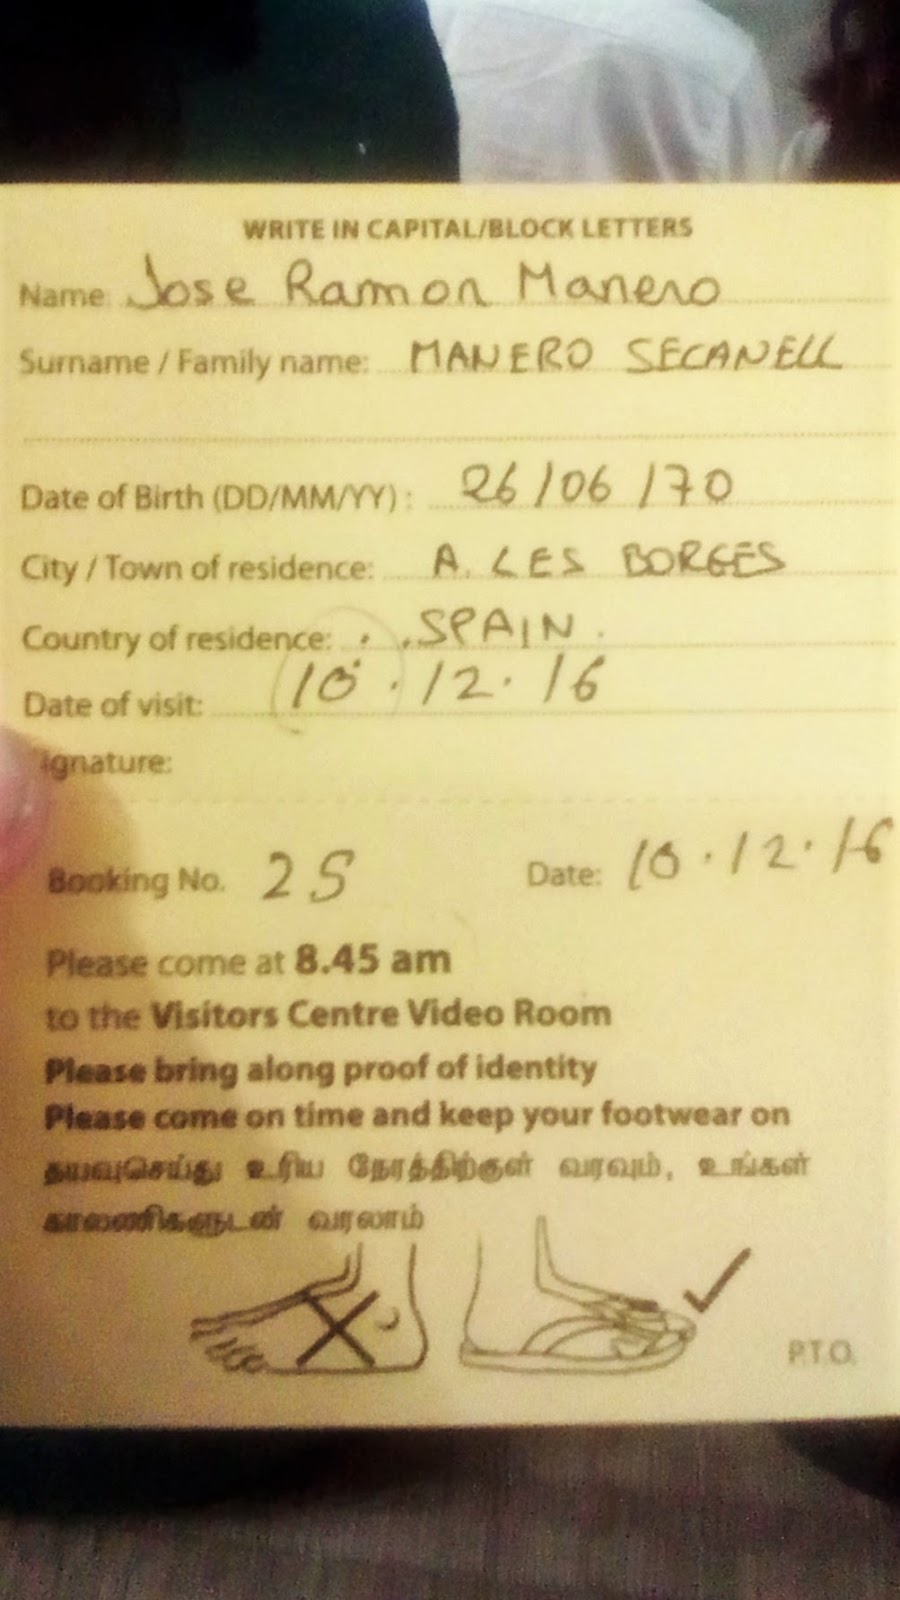 WRITE IN CAPITAL/BLOCK LETTERS
Name: Jose Ramon Manero
Surname / Family name: MANERO SECANELL
Date of Birth (DD/MM/YY) : 26/06/70
City / Town of residence: A. LES BORGES
Country of residence: SPAIN.
Date of visit: 10.12.16
ignature:
Booking No. 25 Date: 10.12.16
Please come at 8.45 am
to the Visitors Centre Video Room
Please bring along proof of identity
Please come on time and keep your footwear on
தயவுசெய்து உரிய நேரத்திற்குள் வரவும், உங்கள்
காலணிகளுடன் வரலாம்
P.T.O.